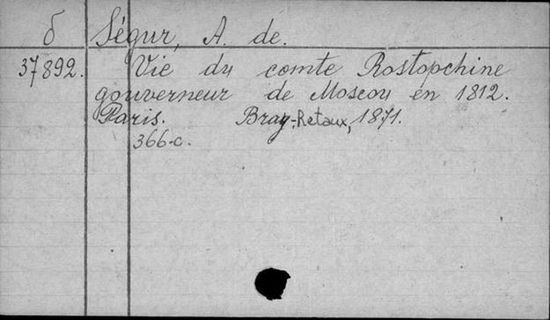 б Ségur, A. de.
37892. Vie du comte Rostopchine
gouverneur de Moscou en 1812.
Paris. Bray-Retaux, 1871.
366 c.